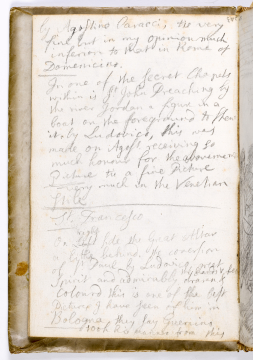 by Agostino Caracci, tis very
fine but in my opinion much
inferior to that in Rome of
Domenicino.
In one of the Secret Chapels
within is St John Preaching by
the river Jordan a figure in a
boat on the foreground to shew
its by Ludovico, this was
made on Agost: receiving so
much honour for the abovemen
Picture tis a fine Picture
very much in the Venetian
Stile
St Francesco
On right side the Great Altar
behind, the Conversion
of St Paul by Ludovico, great
Spirit and admirably drawn &
Colourd this is one of the best
Pictures I have seen of him in
Bologna, this say Guercino
took his manner from this